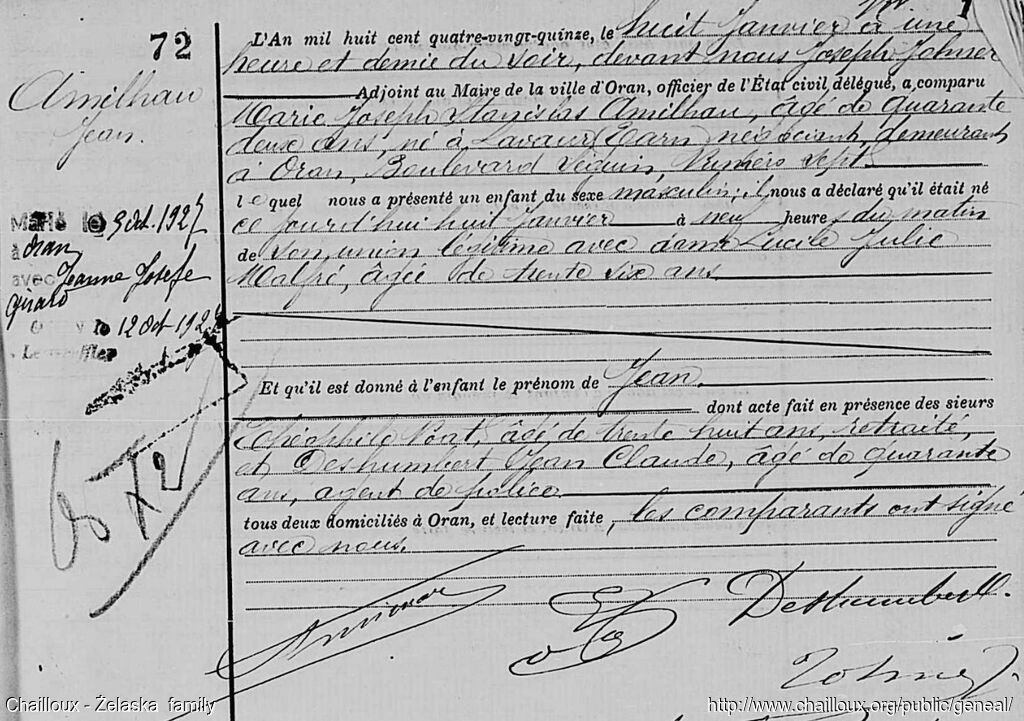 72
Amilhau
Jean.
Marié le 3 Oct. 1927
à Oran
avec Jeanne Josefe
Girard
le 12 Oct 192
L'An mil huit cent quatre-vingt-quinze, le huit Janvier à une
heure et demie du soir, devant nous Joseph Johner
Adjoint au Maire de la ville d'Oran, officier de l'État civil délégué, a comparu
Marie Joseph Stanislas Amilhau, âgé de quarante
deux ans, né à Lavaur (Tarn) négociant, demeurant
à Oran, Boulevard Seguin, Numéro sept.
lequel nous a présenté un enfant du sexe masculin; il nous a déclaré qu'il était né
ce jourd'hui huit Janvier à neuf heure du matin
de son union légitime avec dame Lucile Julie
Malfré, âgée de trente six ans
Et qu'il est donné à l'enfant le prénom de Jean.
dont acte fait en présence des sieurs
Théophile âgé de trente huit ans, retraité,
et Deshumbert Jean Claude, âgé de quarante
ans, agent de police
tous deux domiciliés à Oran, et lecture faite, les comparants ont signé
avec nous.
Deshumbert.
Johner J.
Chailloux - Želaska family
http://www.chailloux.org/public/geneal/